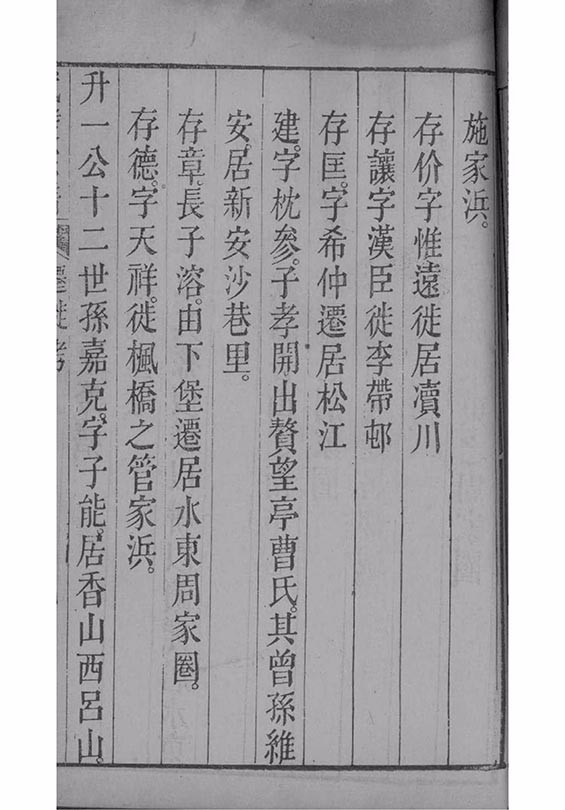 施家浜。
存价字惟遠徙居瀆川
存讓字漢臣徙李帶邨
存匡。字希仲遷居松江
建。字枕參。子孝開出贅望亭曹氏。其曾孫維
安。居新安沙巷里。
存章。長子溶。由下堡遷居水東周家圈。
存德。字天祥。徙楓橋之管家浜。
升一公十二世孫嘉克。字子能。居香山西呂山。
遷徙考